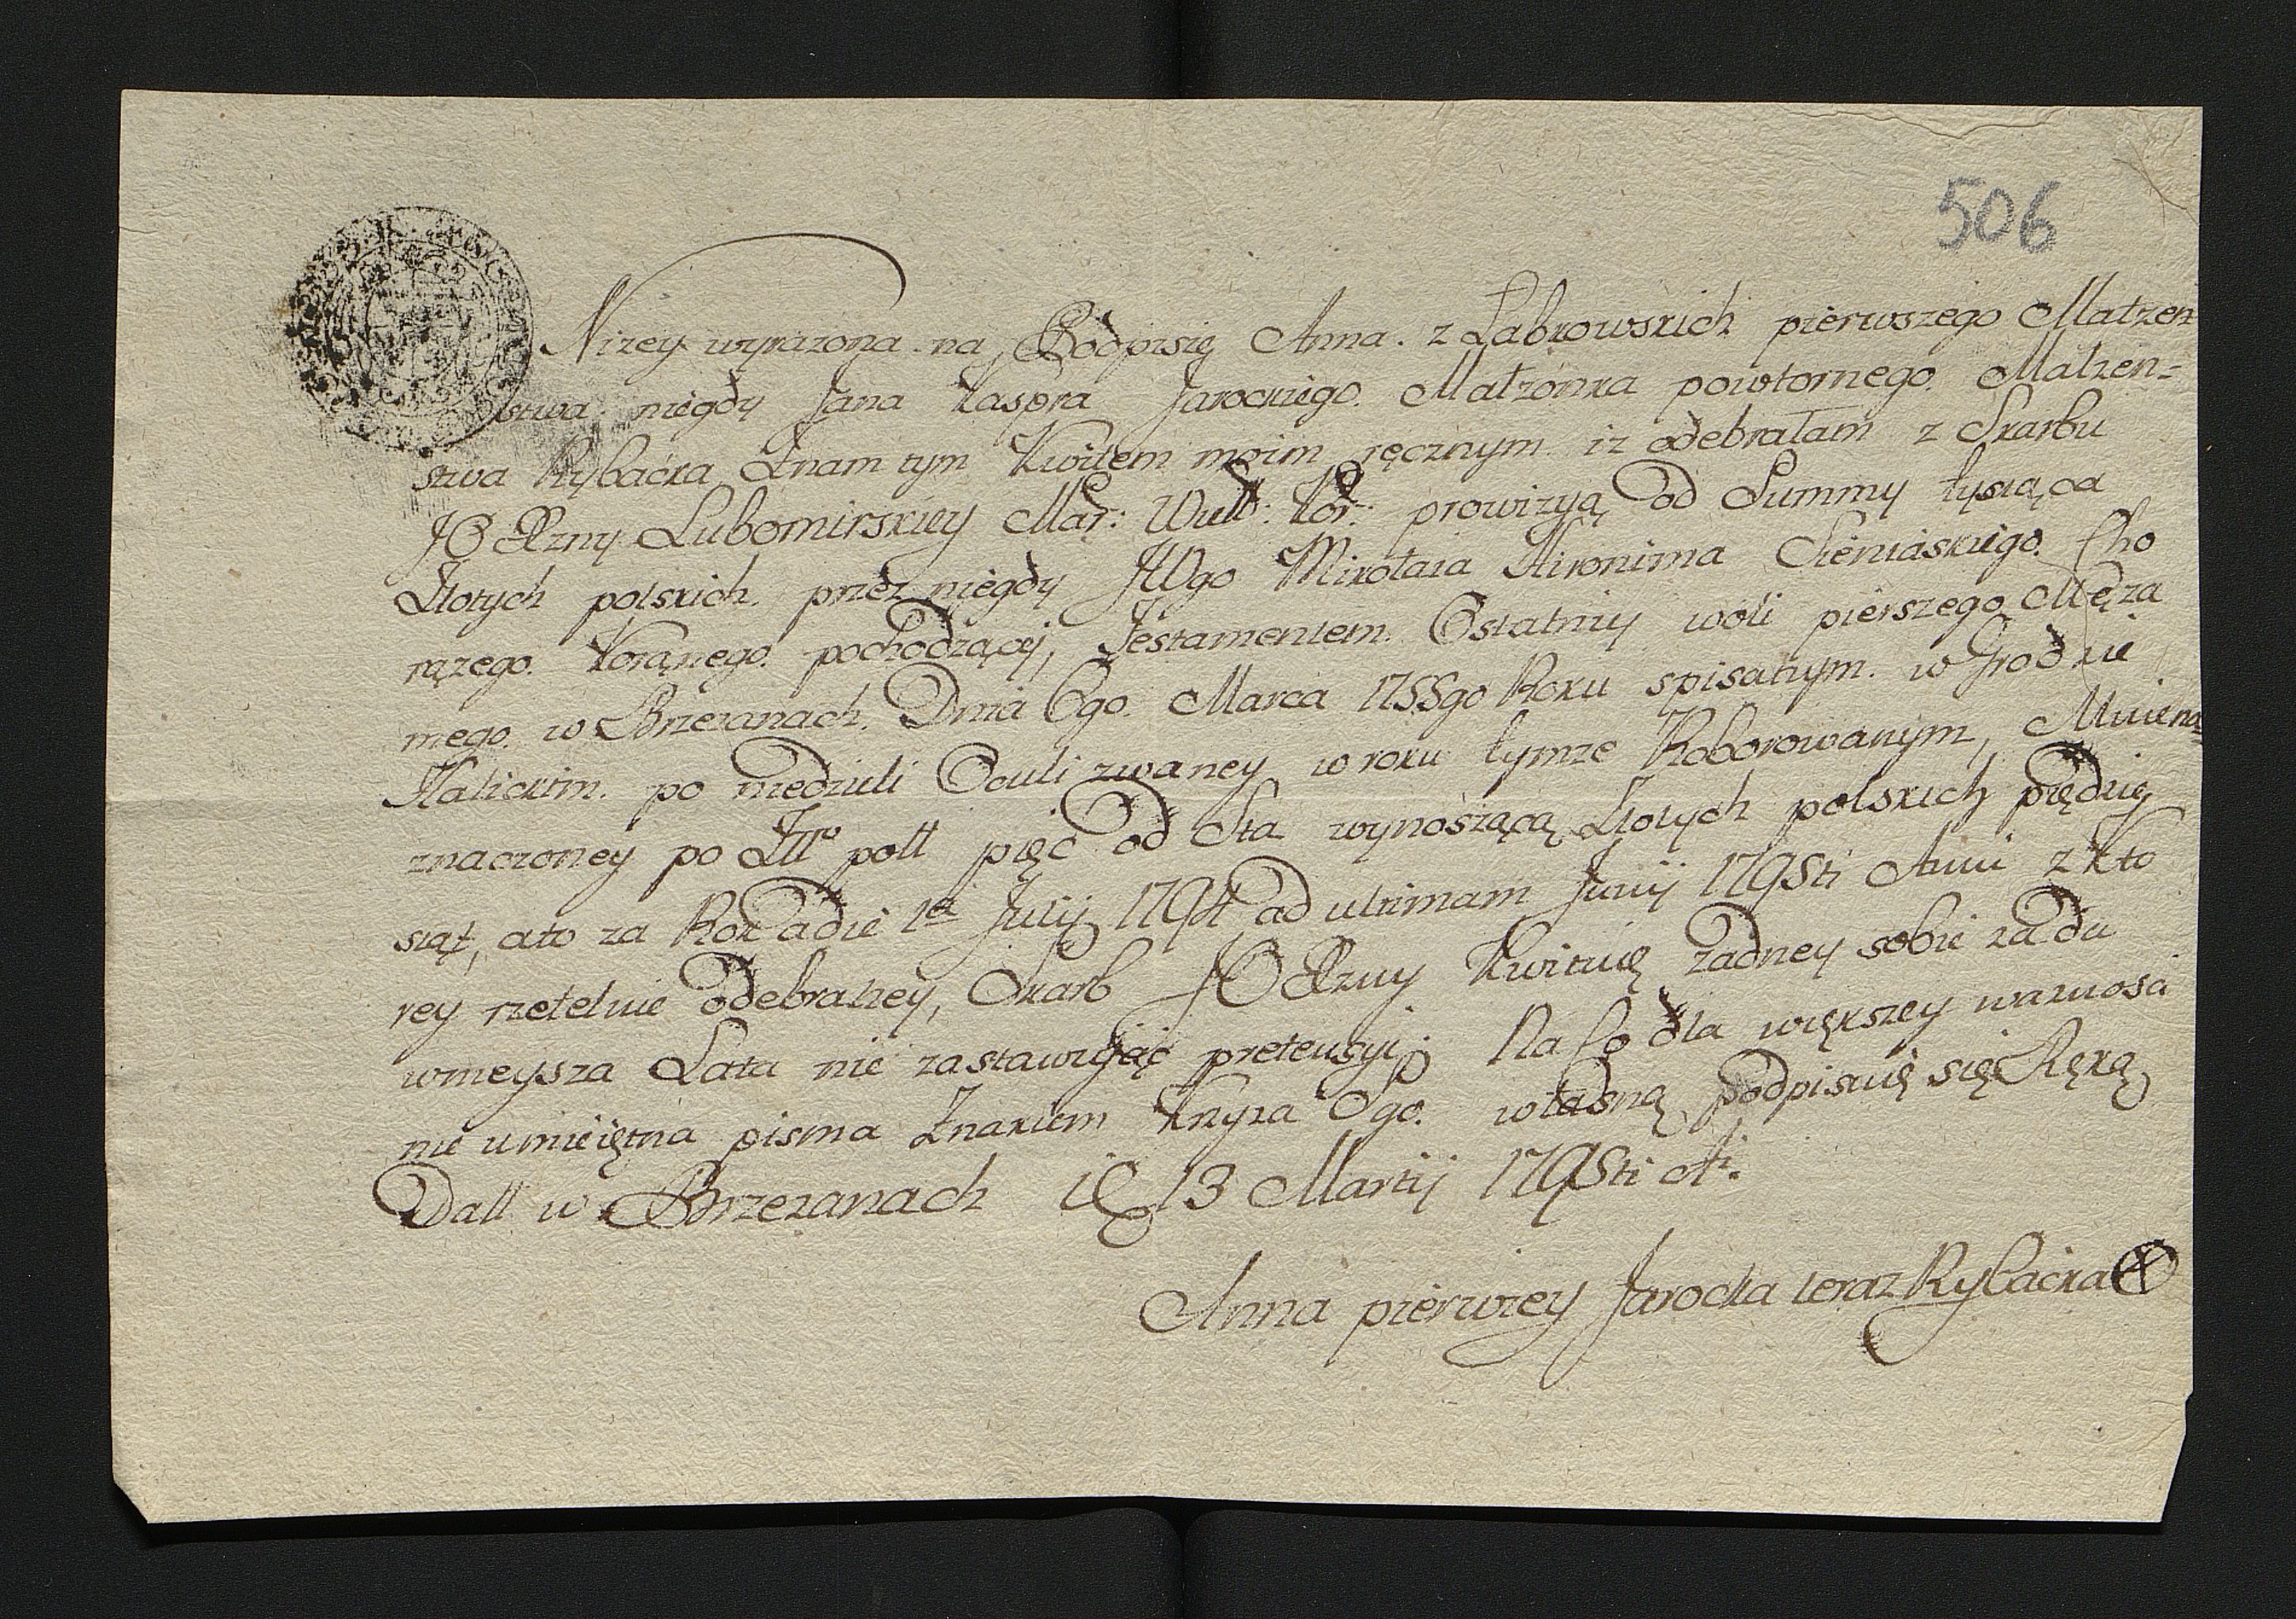 506
Nizey wyrazona na Podpisię Anna. z Labrowskich pierwszego Małzen
stwa niegdy Jana Kaspra Jarockiego. Małzonka powtornego. Małzen=
stwa Rybacka Znam tym Kwitem moim ręcznym iz odebrałam z Skarbu
JO Xzny Lubomirskiey Mar: Wiell: Kor: prowizyą od Summy tysiąca
Złotych polskich. przez niegdy JWgo Mikołaia Hironima Sieniaskiego. Cho
rązego. Korąnego. pochodzącej, Testamentem. Ostatniy woli pierszego Męza
mego. w Brzezanach. Dnia 6go. Marca 1755go Roku spisanym. w Grodzie
Halickim. po niedzieli Oculi zwaney w roku tymze Roborowanym, Mnie na=
znaczoney po Złło poll pięć od Sta wynoszącą Złotych polskich piędzie
siąt, a to za Rok a die 1a Julij 1794 ad ultimam Junij 1795ti Anni z kto
rey rzetelnie odebraney, Skarb JO Xzny Kwituię zadney sobie za da
wnieysza Lata nie zastawując pretensyi. Na Co dla większey waznosci
nie umieiętna pisma Znakiem Krzyza Sgo. własną podpisuię się Ręką
Datt w Brzezanach ię 13 Martij 1795ti Ai.
Anna pierwiey Jarocka teraz Rybacka